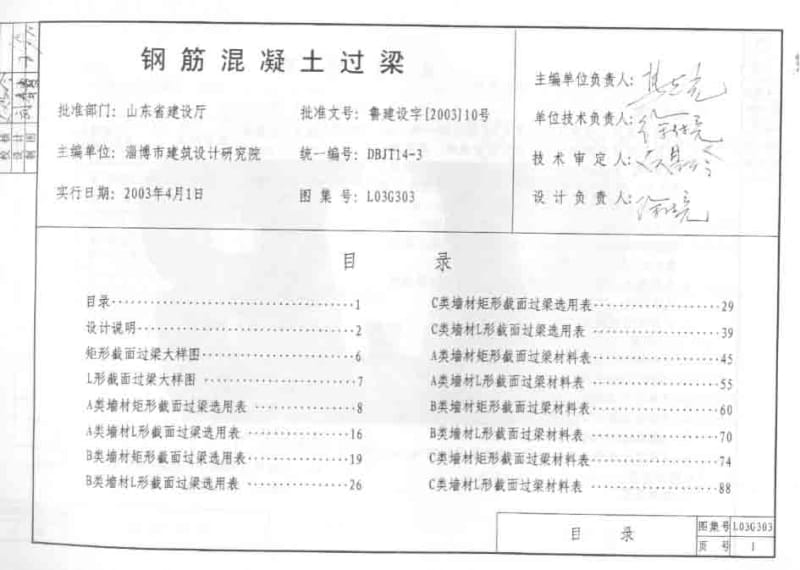 钢筋混凝土过梁
批准部门：山东省建设厅
批准文号：鲁建设字[2003]10号
主编单位：淄博市建筑设计研究院
统一编号：DBJT14-3
实行日期：2003年4月1日
图集号：L03G303
主编单位负责人：
单位技术负责人：
技术审定人：
设计负责人：
目录
目录 1
设计说明 2
矩形截面过梁大样图 6
L形截面过梁大样图 7
A类墙材矩形截面过梁选用表 8
A类墙材L形截面过梁选用表 16
B类墙材矩形截面过梁选用表 19
B类墙材L形截面过梁选用表 26
C类墙材矩形截面过梁选用表 29
C类墙材L形截面过梁选用表 39
A类墙材矩形截面过梁材料表 45
A类墙材L形截面过梁材料表 55
B类墙材矩形截面过梁材料表 60
B类墙材L形截面过梁材料表 70
C类墙材矩形截面过梁材料表 74
C类墙材L形截面过梁材料表 88
目录
图集号 L03G303
页号 1
校核
设计
制图